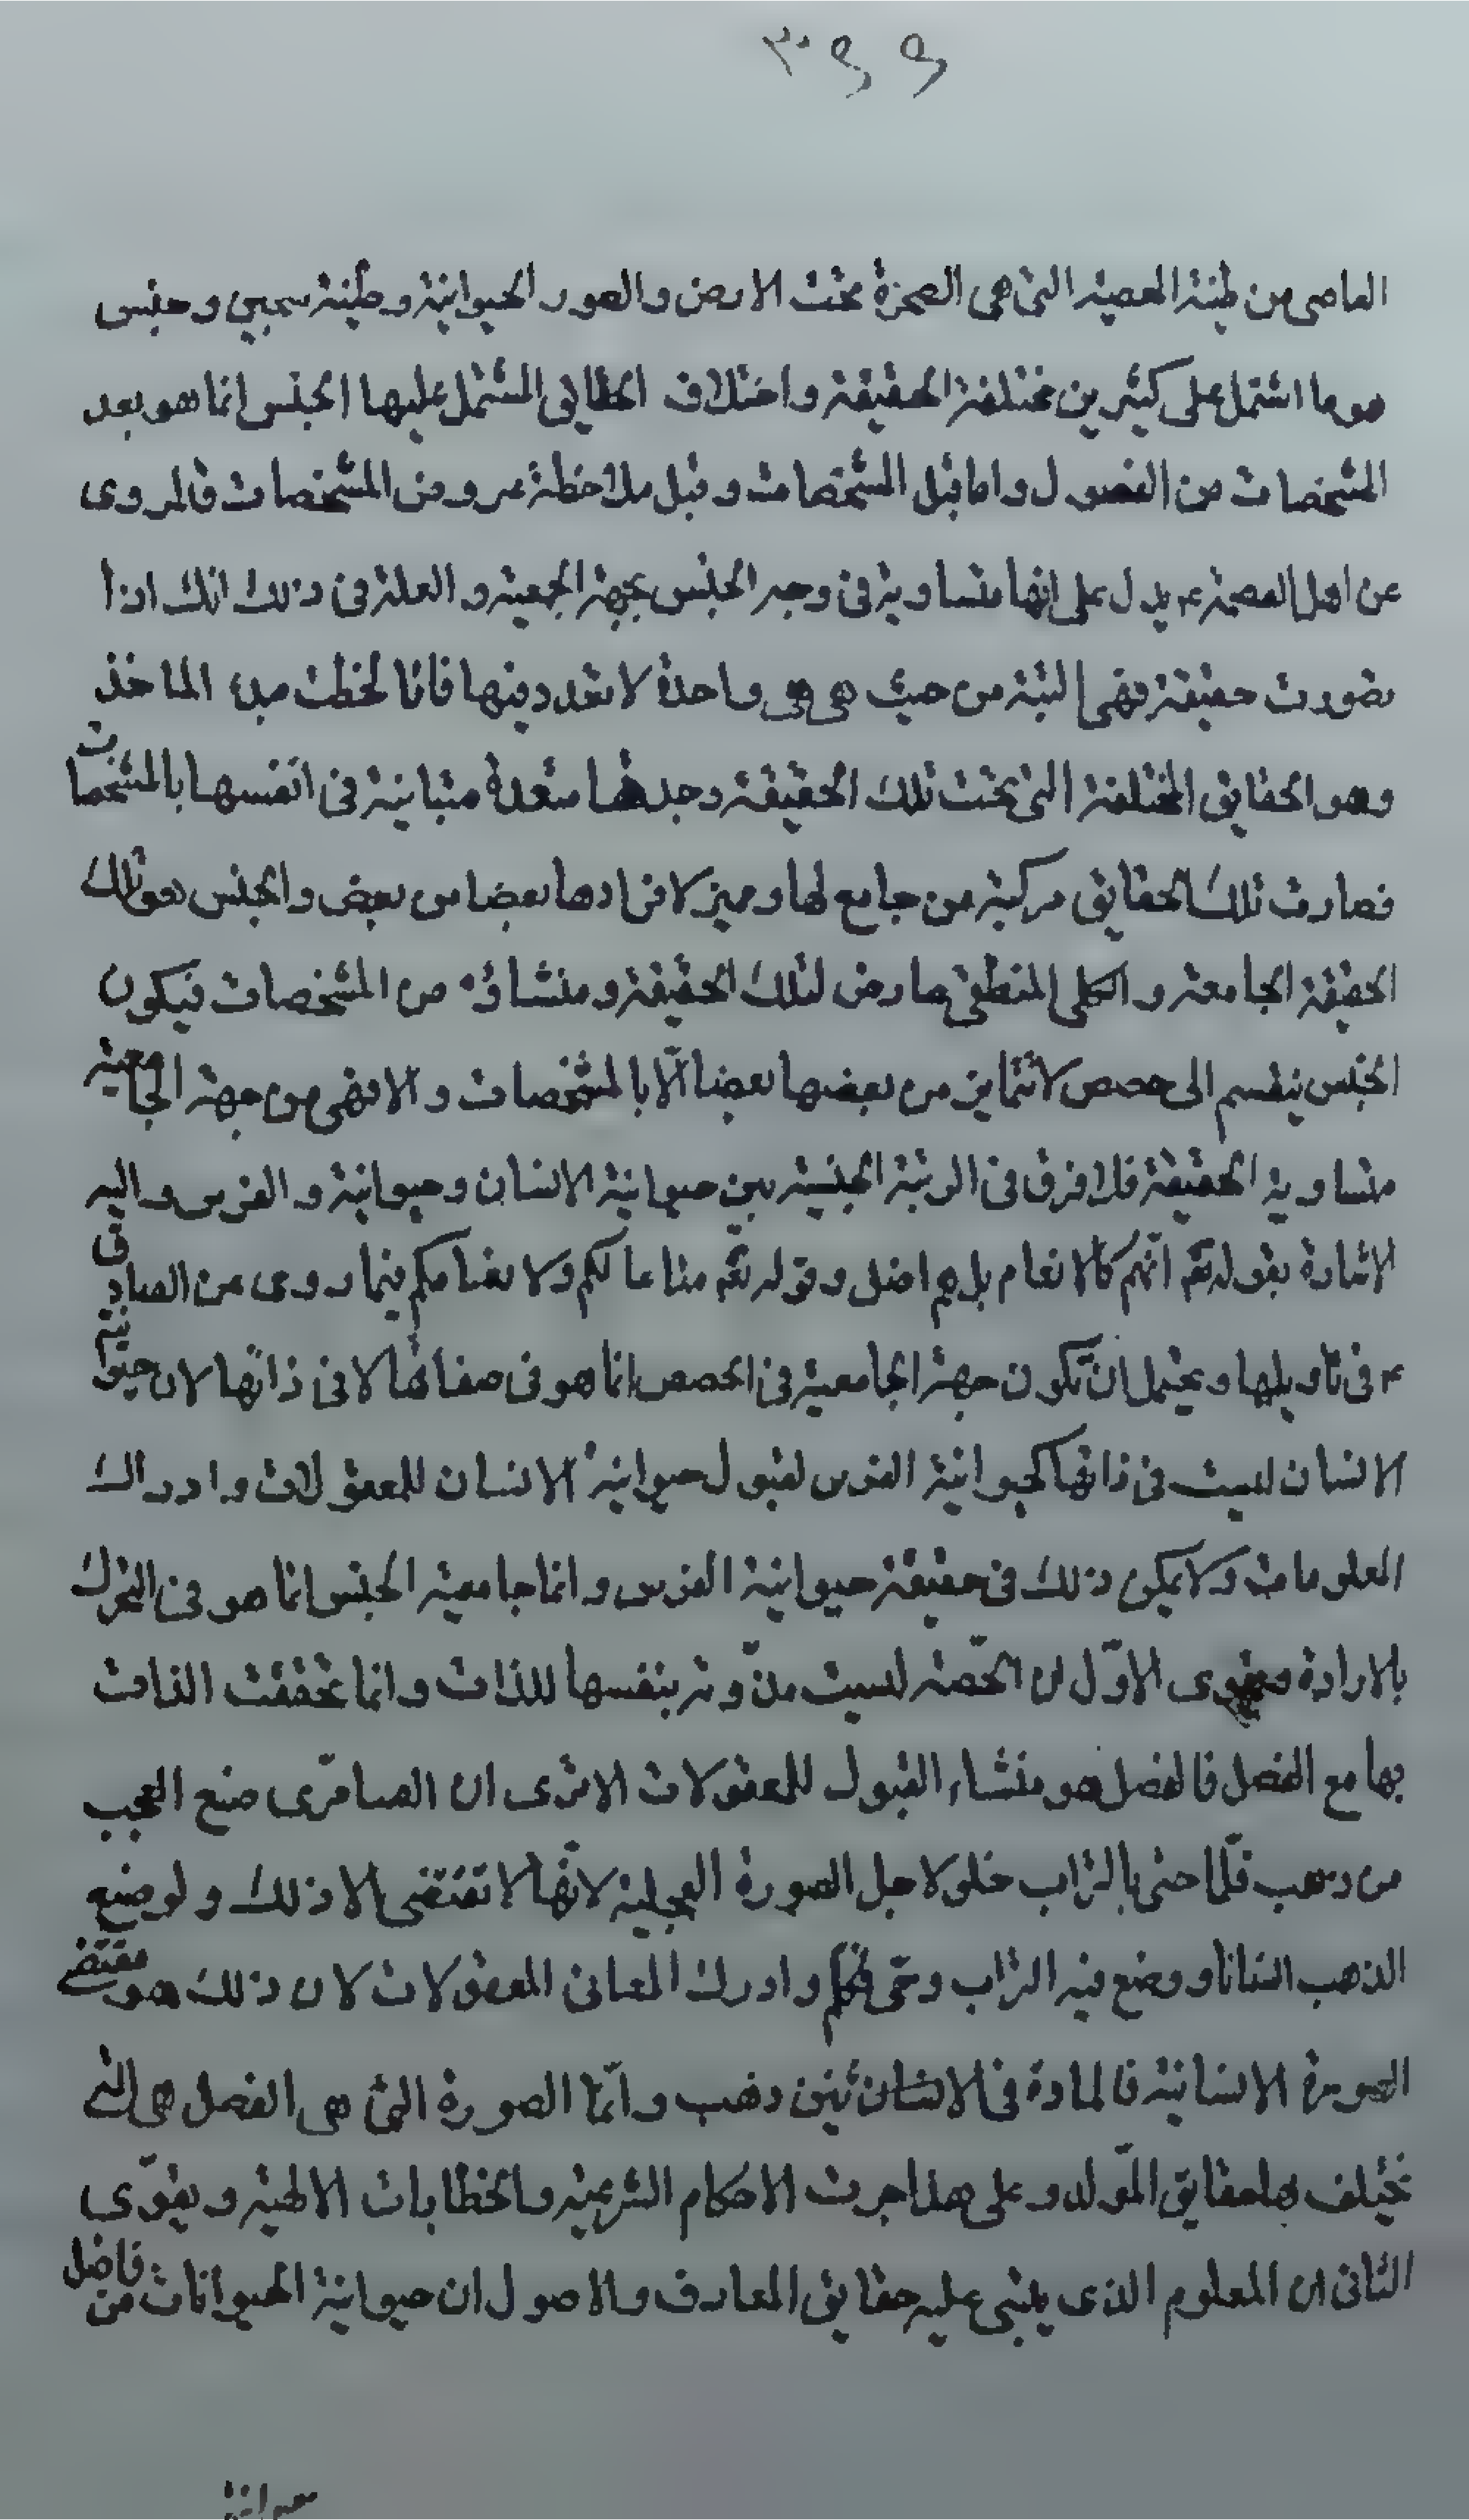 العاصى من طينة المعصية التى هى الصخرة تحت الارض والصور الحيوانية وطينة سجيى وجنس
هو ما اشتمل على كثيرين مختلفة الحقيقة واختلاف الحقائق المشتمل عليها الجنس انما هو بعد
المشخصات من الفصول واما قبل المشخصات وقبل ملاحظة عروض المشخصات فالمروى
عن اهل العصمة ع يدل على انها متساوية فى وجه الجنس بجهة الجمعية والعلة فى ذلك انك اذا
تصورت حقيقة فهى البتة من حيث هى هى واحدة لا تعدد فيها فاذا لحظت مبدء الماخذ
وهو الحقايق المختلفة التى تحت تلك الحقيقة وجدها متعددة متباينة فى انفسها بالمشخصات
فصارت تلك الحقايق مركبة من جامع لها ومميز لافرادها بعضا من بعض والجنس هو تلك
الحقيقة الجامعة والكلى المنطقى عارض لتلك الحقيقة ومنشاؤه من المشخصات فيكون
الجنس ينقسم الى حصص لا تتمايز من بعضها بعضا الّا بالمشخصات والا فهى من جهة الجامعية
متساوية الحقيقة فلا فرق فى الرتبة الجنسية بين حيوانية الانسان وحيوانية والفرس واليه
الاشارة بقوله تع انّهم كالانعام بل هم اضل وقوله تع متاعا لكم ولانعامكم فيما روى عن الصادق
ع فى تاويلها ويحتمل ان تكون جهة الجامعية فى الحصص انما هو فى صفاتها لا فى ذاتها لان حيوانية
الانسان ليست فى ذاتها كحيوانية الفرس لقبول حيوانية الانسان للمعقولات وادراك
المعلومات ولا يمكن ذلك فى حقيقة حيوانية الفرس وانما جامعية الجنس انما هو فى التحرك
بالارادة ويقوى الاوّل ان الحصّة ليست مذوّته بنفسها للذات وانما تحققت الذات
بها مع الفصل فالفصل هو منشاء القبول للمعقولات الا ترى ان السامرّى صنع العجب
من ذهب فلّما حشى بالتراب خلو لاجل الصورة العجلية لانّها لا تقتضى الا ذلك ولو صنع
الذهب انسانا ووضع فيه التراب وحّى فكلم وادرك المعانى المعقولات لان ذلك هو مقتضى
الصورة الانسانية فالمادة فى الانسان تين ذهب وامّا الصورة التى هى الفصل هى التى
تختلف بها حقايق المّولد وعلى هذا جرت الاحكام الشرعية والخطابات الالهية ويقوّى
الثانى ان المعلوم الذى يبتنى عليه حقايق المعارف والاصول ان حيوانية الحيوانات من فاضل